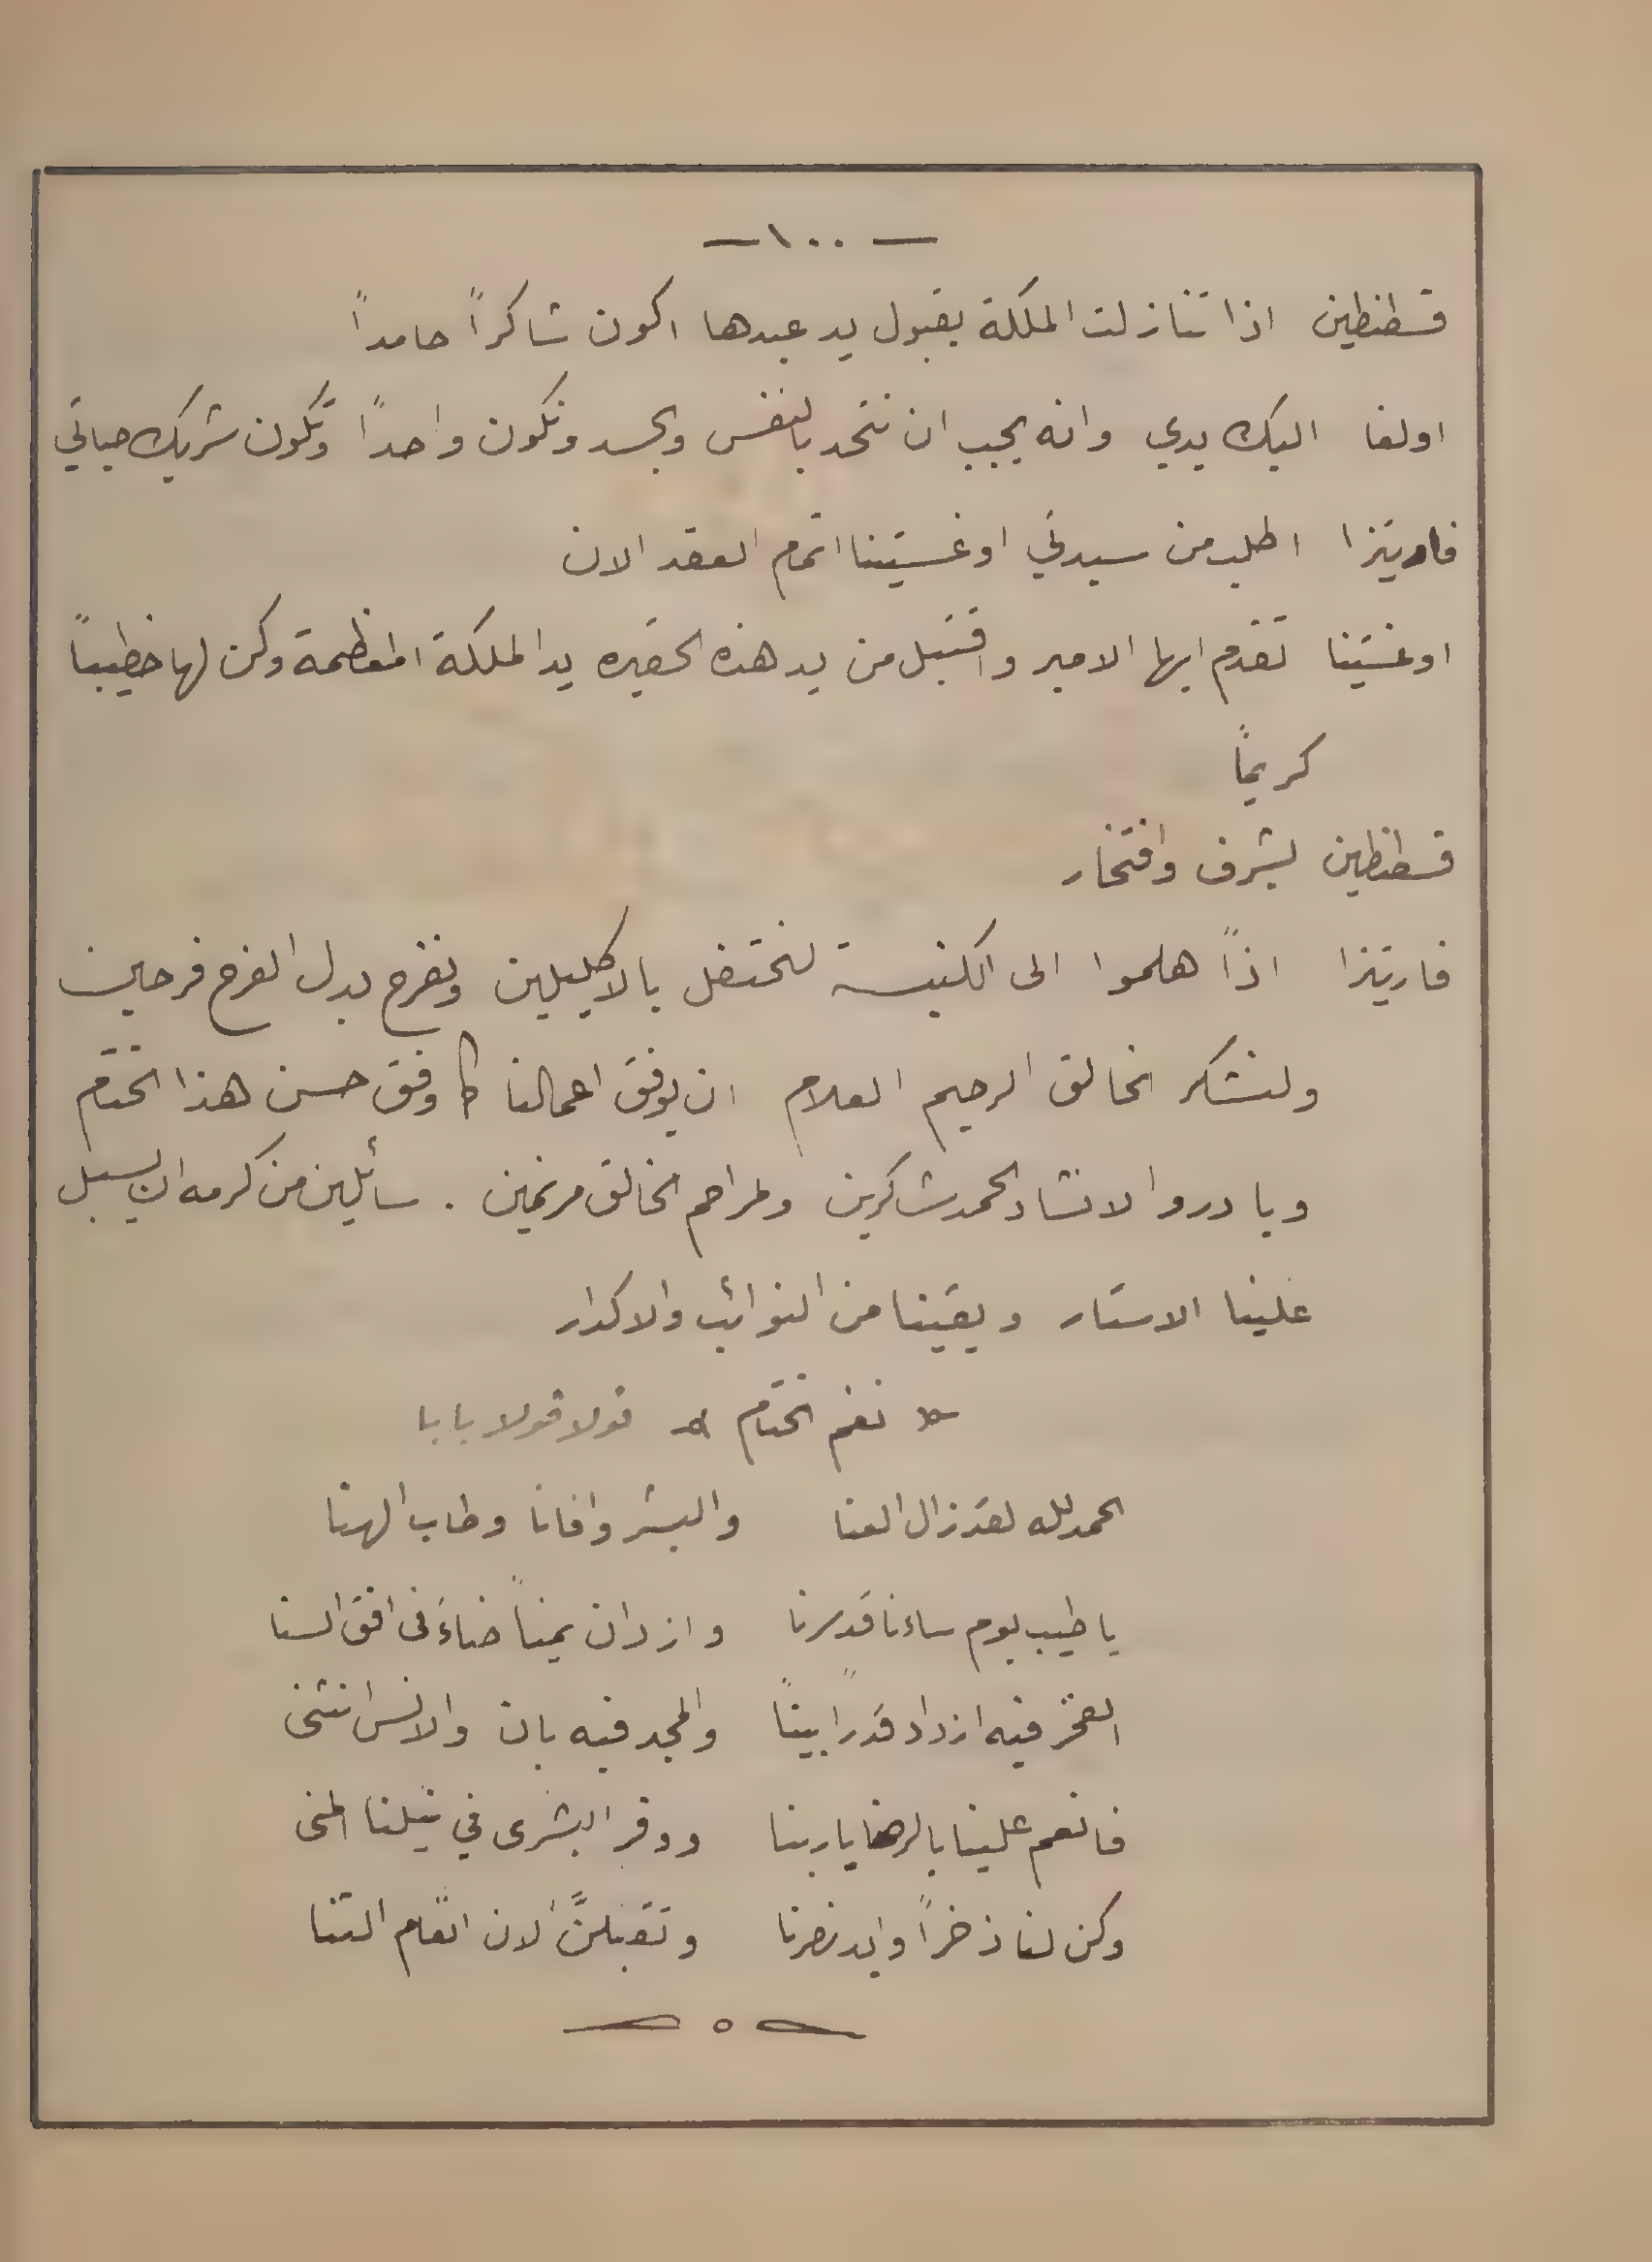 — ١٠٠ —
قسطنطين اذا تنازلت الملكة بقبول يد عبدها اكون شاكراً حامداً
اولغا اليك يدي وانه يجب ان نتحد بالنفس والجسد ونكون واحداً وتكون شريك حياتي
فاريتزا اطلب من سيدتي اوغستينا اتمام العقد الان
اوغستينا تقدم ايها الامير واقتبل من يد هذه الحقيره يد الملكة المعظمة وكن لها خطيباً
كريماً
قسطنطين بشرف وافتخار
فاريتزا اذاً هلموا الى الكنيسة لنحتفل بالاكليلين ونفرح بدل الفرح فرحين
ولنشكر الخالق الرحيم العلام ان يوفق اعمالنا كما وفق حسن هذا الختام
وبادروا لانشاد الحمد شاكرين ولمراحم الخالق مرنمين . سائلين من كرمه ان يسبل
علينا الاستار ويقينا من النوائب والاكدار
نغم الختام قولا قولا بابا
الحمد لله لقد زال العنا والبشر وافانا وطاب الهنا
يا طيب يوم ساءنا قد سرنا وازدان يمناً ضاءَ فى افق السنا
الفخر فيه ازداد قدراً بيناً والمجد فيه بان والانس انثنى
فانعم علينا بالرضا يا ربنا ووفر البشرى في نيلنا المنى
وكن لنا ذخراً وايد نصرنا وتقبلنَّ الان اتمام الثنا